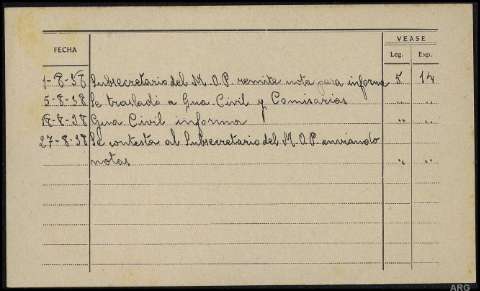 VEASE
FECHA Leg. Exp.
1-8-38 Subsecretario del M.O.P. remite nota para informe 5 14
5-8-38 Se traslada a Gua Civil y Comisarios " "
-8-38 Gua Civil informa " "
27-8-38 Se contesta al Subsecretario del M.O.P. enviando
notas " "
ARG